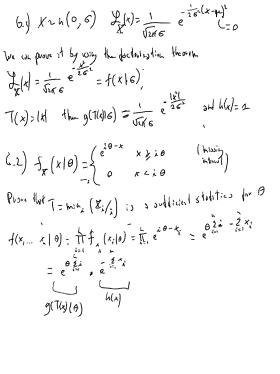 6.1) X ~ n(0, σ) f_X(x) = 1/√(2π)σ e^{-1/(2σ²)(x-μ)²} = 0
We can prove it by using the factorization theorem
f_X(x) = 1/√(2π)σ e^{-x²/(2σ²)} = f(x|σ)
T(x) = |x| then g(T(x)|σ) = 1/√(2π)σ e^{-|x|²/(2σ²)} and h(x) = 1
6.2) f_X(x|θ) = { e^{iθ-x} x ≥ iθ
0 x < iθ
Prove that T = min_i (X_i/i) is a sufficient statistics for θ
f(x_1 ... x_n|θ) = ∏ f_X(x_i|θ) = ∏ e^{iθ-x_i} = e^{θΣi - Σx_i}
= e^{θΣi} · e^{-Σx_i}
g(T(x)|θ) h(x)